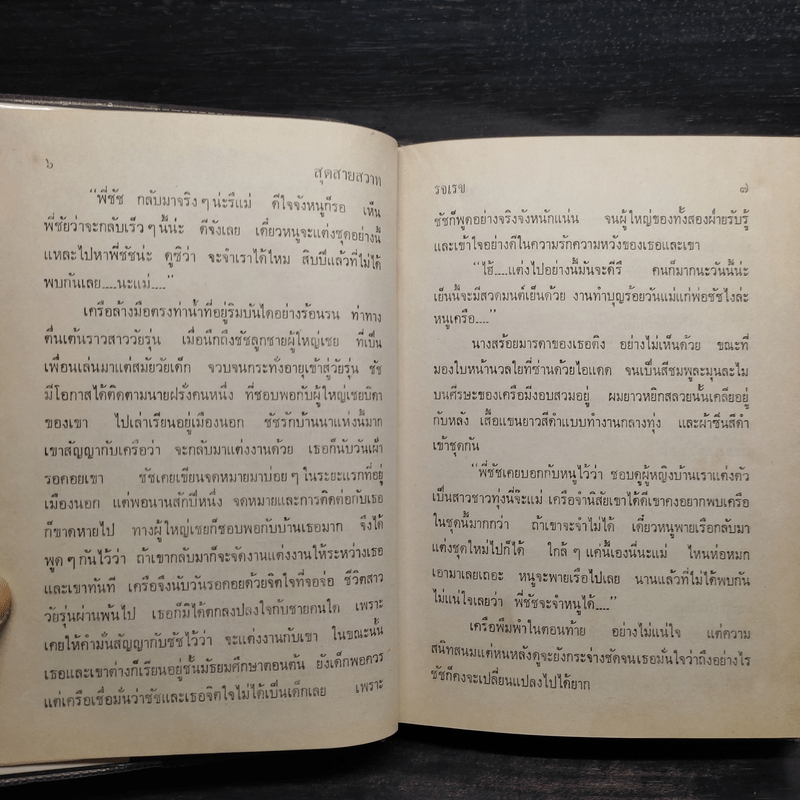 ๖
สุดสายสวาท
“พี่ชัช กลับมาจริง ๆ น่ะรึแม่ ดีใจจังหนูก็รอ เห็น
พี่ชัยว่าจะกลับเร็ว ๆ นี้น่ะ ดีจังเลย เดี๋ยวหนูจะแต่งชุดอย่างนี้
แหละไปหาพี่ชัชน่ะ ดูซิว่า จะจำเราได้ไหม สิบปีแล้วที่ไม่ได้
พบกันเลย....นะแม่....”
เครือล้างมือตรงท่าน้ำที่อยู่ริมบันไดอย่างร้อนรน ท่าทาง
ตื่นเต้นราวสาววัยรุ่น เมื่อนึกถึงชัชลูกชายผู้ใหญ่เชย ที่เป็น
เพื่อนเล่นมาแต่สมัยวัยเด็ก จวบจนกระทั่งอายุเข้าสู่วัยรุ่น ชัช
มีโอกาสได้ติดตามนายฝรั่งคนหนึ่ง ที่ชอบพอกับผู้ใหญ่เชยบิดา
ของเขา ไปเล่าเรียนอยู่เมืองนอก ชัชรักบ้านนาแห่งนี้มาก
เขาสัญญากับเครือว่า จะกลับมาแต่งงานด้วย เธอก็นับวันเฝ้า
รอคอยเขา ชัชเคยเขียนจดหมายมาบ่อย ๆ ในระยะแรกที่อยู่
เมืองนอก แต่พอนานสักปีหนึ่ง จดหมายและการติดต่อกับเธอ
ก็ขาดหายไป ทางผู้ใหญ่เชยก็ชอบพอกับบ้านเธอมาก จึงได้
พูด ๆ กันไว้ว่า ถ้าเขากลับมาก็จะจัดงานแต่งงานให้ระหว่างเธอ
และเขาทันที เครือจึงนับวันรอคอยด้วยจิตใจที่จอจ่อ ชีวิตสาว
วัยรุ่นผ่านพ้นไป เธอก็มิได้ตกลงปลงใจกับชายคนใด เพราะ
เคยให้คำมั่นสัญญากับชัชไว้ว่า จะแต่งงานกับเขา ในขณะนั้น
เธอและเขาต่างก็เรียนอยู่ชั้นมัธยมศึกษาตอนต้น ยังเด็กพอควร
แต่เครือเชื่อมั่นว่าชัชและเธอจิตใจไม่ได้เป็นเด็กเลย เพราะ
รจเรข
๗
ชัชก็พูดอย่างจริงจังหนักแน่น จนผู้ใหญ่ของทั้งสองฝ่ายรับรู้
และเข้าใจอย่างดีในความรักความหวังของเธอและเขา
“ไฮ้....แต่งไปอย่างนี้มันจะดีรึ คนก็มากนะวันนี้น่ะ
เย็นนี้จะมีสวดมนต์เย็นด้วย งานทำบุญร้อยวันแม่แก่พ่อชัชไงล่ะ
หนูเครือ....”
นางสร้อยมารดาของเธอติง อย่างไม่เห็นด้วย ขณะที่
มองใบหน้านวลใยที่ซ่านด้วยไอแดด จนเป็นสีชมพูละมุนละไม
บนศีรษะของเครือมีงอบสวมอยู่ ผมยาวหยิกสลวยนั้นเคลียอยู่
กับหลัง เสื้อแขนยาวสีดำแบบทำงานกลางทุ่ง และผ้าซิ่นสีดำ
เข้าชุดกัน
“พี่ชัชเคยบอกกับหนูไว้ว่า ชอบดูผู้หญิงบ้านเราแต่งตัว
เป็นสาวชาวทุ่งนี่จ้ะแม่ เครือจำนิสัยเขาได้ดีเขาคงอยากพบเครือ
ในชุดนี้มากกว่า ถ้าเขาจะจำไม่ได้ เดี๋ยวหนูพายเรือกลับมา
แต่งชุดใหม่ไปก็ได้ ใกล้ ๆ แค่นี้เองนี่นะแม่ ไหนห่อหมก
เอามาเลยเถอะ หนูจะพายเรือไปเลย นานแล้วที่ไม่ได้พบกัน
ไม่แน่ใจเลยว่า พี่ชัชจะจำหนูได้....”
เครือพึมพำในตอนท้าย อย่างไม่แน่ใจ แต่ความ
สนิทสนมแต่หนหลังดูจะยังกระจ่างชัดจนเธอมั่นใจว่าถึงอย่างไร
ชัชก็คงจะเปลี่ยนแปลงไปได้ยาก